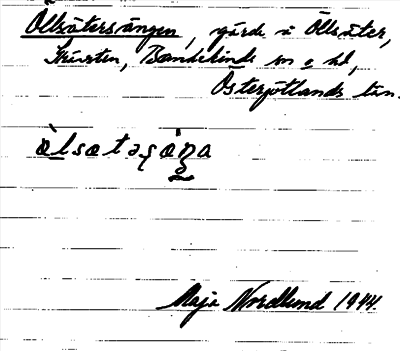 Ölsätersängen, gärde i Ölsäter,
Skärsten, Bankekinds sn o hd,
Östergötlands län.
ö̀lsætəʂæ̀ŋa
Maja Nordlund 1944